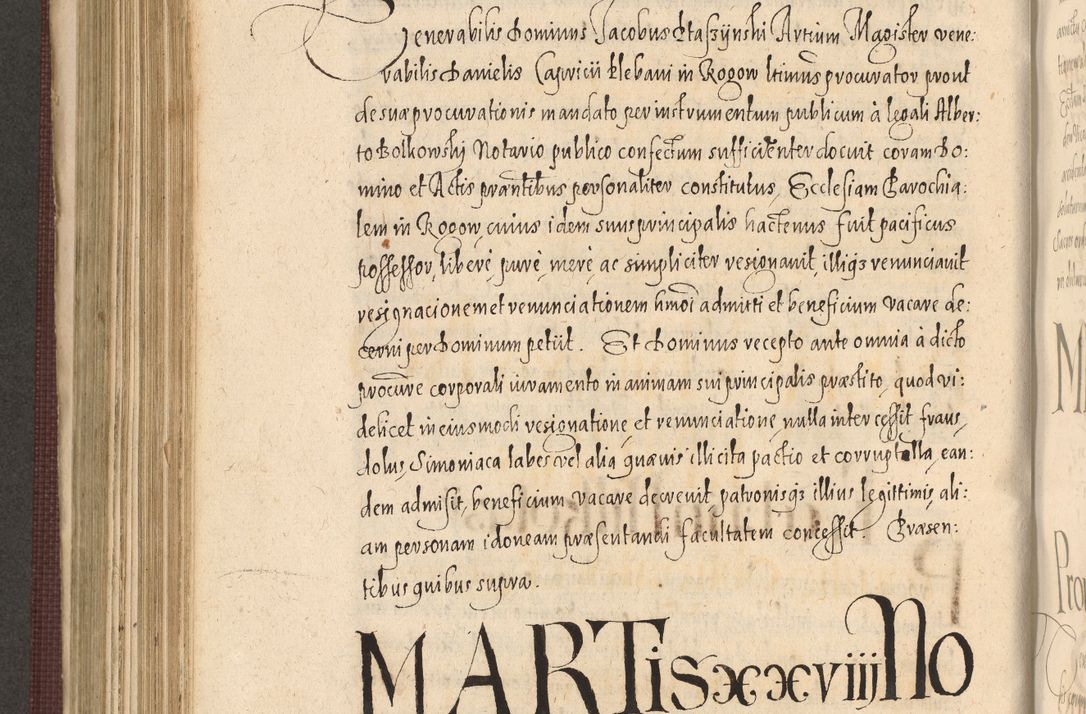 Venerabilis Dominus Jacobus Staszÿnski Artium Magister vene:
rabilis Danielis Casvricii Plebani in Rogow ltimus procurator prout
de suæ procurationis mandato per instrumentum publicum à legali Alber:
to Bolkowski Notario publico confectum sufficienter docuit coram Do:
mino et Actis præntibus personaliter constitutus, Ecclesiam Parochia:
lem in Rogow, cuius idem suus principalis hactenus fuit pacificus
possessor, liberè purè, merè, ac simpliciter resignavit illiq3 renunciavit
resignacionem et renunciationem hmoi admitti et beneficium vacare de:
cerni per Dominum petiit. Et Dominus recepto ante omnia à dicto
procure corporali iuramento in animam sui principalis præstito, quod vi:
delicet in eiusmodi resignatione et renunciatione nulla intercessit fraus,
dolus, Simoniaca labes vel alia quævis illicita pactio et corruptella, ean:
dem admisit, beneficium vacare decrevit, patronisq3 illius legittimis, ali:
am personam idoneam præsentandi facultatem concessit. Præsen:
tibus quibus supra.
MARTis xxviij No